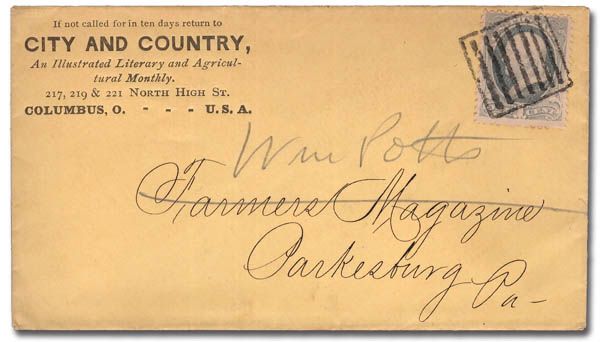 If not called for in ten days return to
CITY AND COUNTRY,
An Illustrated Literary and Agricul-
tural Monthly.
217, 219 & 221 NORTH HIGH ST.
COLUMBUS, O. - - - U. S. A.
Wm Potts
Farmers Magazine
Parkesburg
Pa-